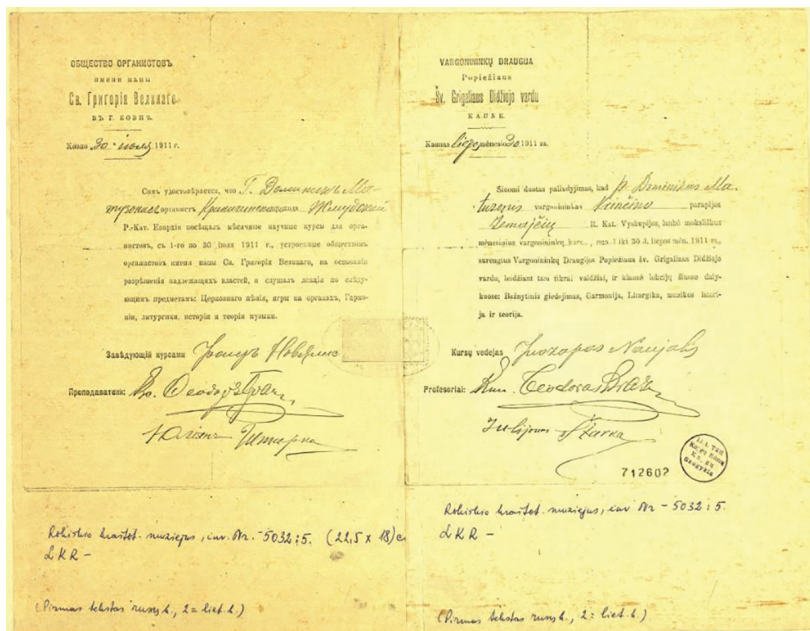 ОБЩЕСТВО ОРГАНИСТОВЪ
ИМЕНИ ПАПЫ
Св. Григорія Великаго
ВЪ Г. КОВНѢ.
Ковно 30 іюля 1911 г.
Симъ удостовѣряется, что Г. Доминикъ Ма-
органистъ Жмудской
Р.-Кат. Епархіи посѣщалъ мѣсячные научные курсы для орга-
нистовъ, съ 1-го по 30 іюля 1911 г., устроенные обществомъ
органистовъ имени папы Св. Григорія Великаго, на основаніи
разрѣшенія надлежащихъ властей, и слушалъ лекціи по слѣду-
ющимъ предметамъ: Церковнаго пѣнія, игры на органахъ, Гармо-
ніи, литургики, исторіи и теоріи музыки.
Завѣдующій курсами
Преподаватели: Кс. Теодоръ
VARGONININKŲ DRAUGIJA
Popiežiaus
Šv. Grigaliaus Didžiojo vardu
KAUNE.
Kaunas liepos mėnesio 30 1911 m.
Šiuomi duotas paliudyjimas, kad p. Dominikas Ma-
tuzevis vargonininkas parapijos
Žemaičių R. Kat. Vyskupijos, lankė moksliškus
mėnesinius vargonininkų kursus, nuo 1 iki 30 d. liepos mėn. 1911 m.,
surengtus Vargonininkų Draugijos Popiežiaus šv. Grigaliaus Didžiojo
vardu, leidžiant tam tikrai valdžiai, ir klausė lekcijų šiuose daly-
kuose: Bažnytinis giedojimas, Garmonija, Liturgika, muzikos istori-
ja ir teorija.
Kursų vedėjas Juozapas Naujalis
Profesoriai: Kun. Teodoras Braze
Julijonas Štarka
712602
Rokiškio kraštot. muziejus, inv. Nr. - 5032 : 5. (22,5 x 18) c
LKR -
Rokiškio kraštot. muziejus, inv. Nr - 5032 : 5.
LKR -
(Pirmas tekstas rusų k., 2 = liet. k.)
(Pirmas tekstas rusų k., 2 = liet. k.)